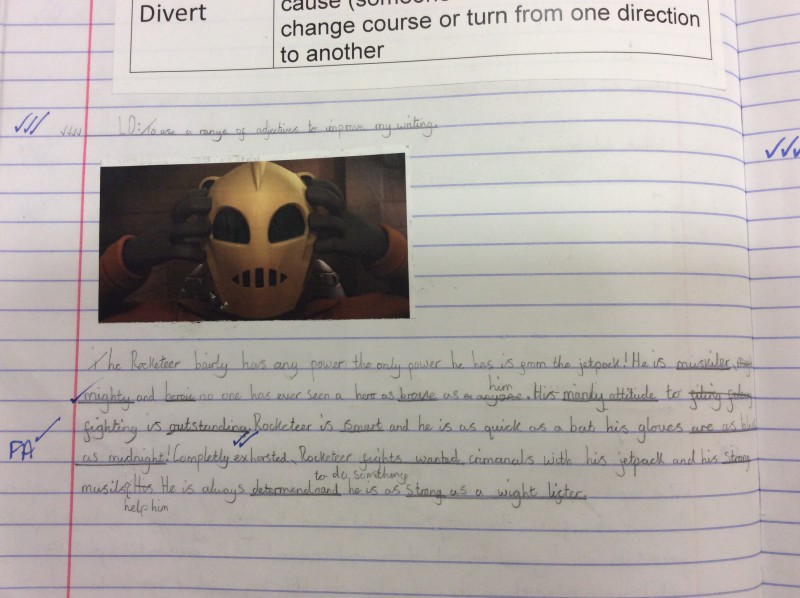 Divert
cause (someone
change course or turn from one direction
to another
LO: To use a range of adjectives to improve my writing.
The Rocketeer bairly has any power the only power he has is from the jetpack! He is muskuler,
mighty and heroic no one has ever seen a hero as brave as
him
anyone. His manly attitude to
fighting is outstanding. Rocketeer is smart and he is as quick as a bat his gloves are as black
PA
as midnight! Completly exhorsted, Rocketeer fights wanted crimanals with his jetpack and his strong
to do something
musils He is always determend and he is as strong as a wight lifter.
help him